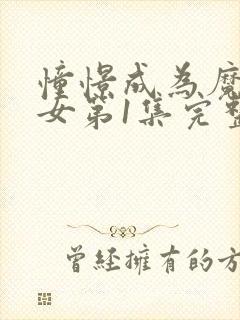 憧憬成為魔
女第1集完整
曾經擁有的方